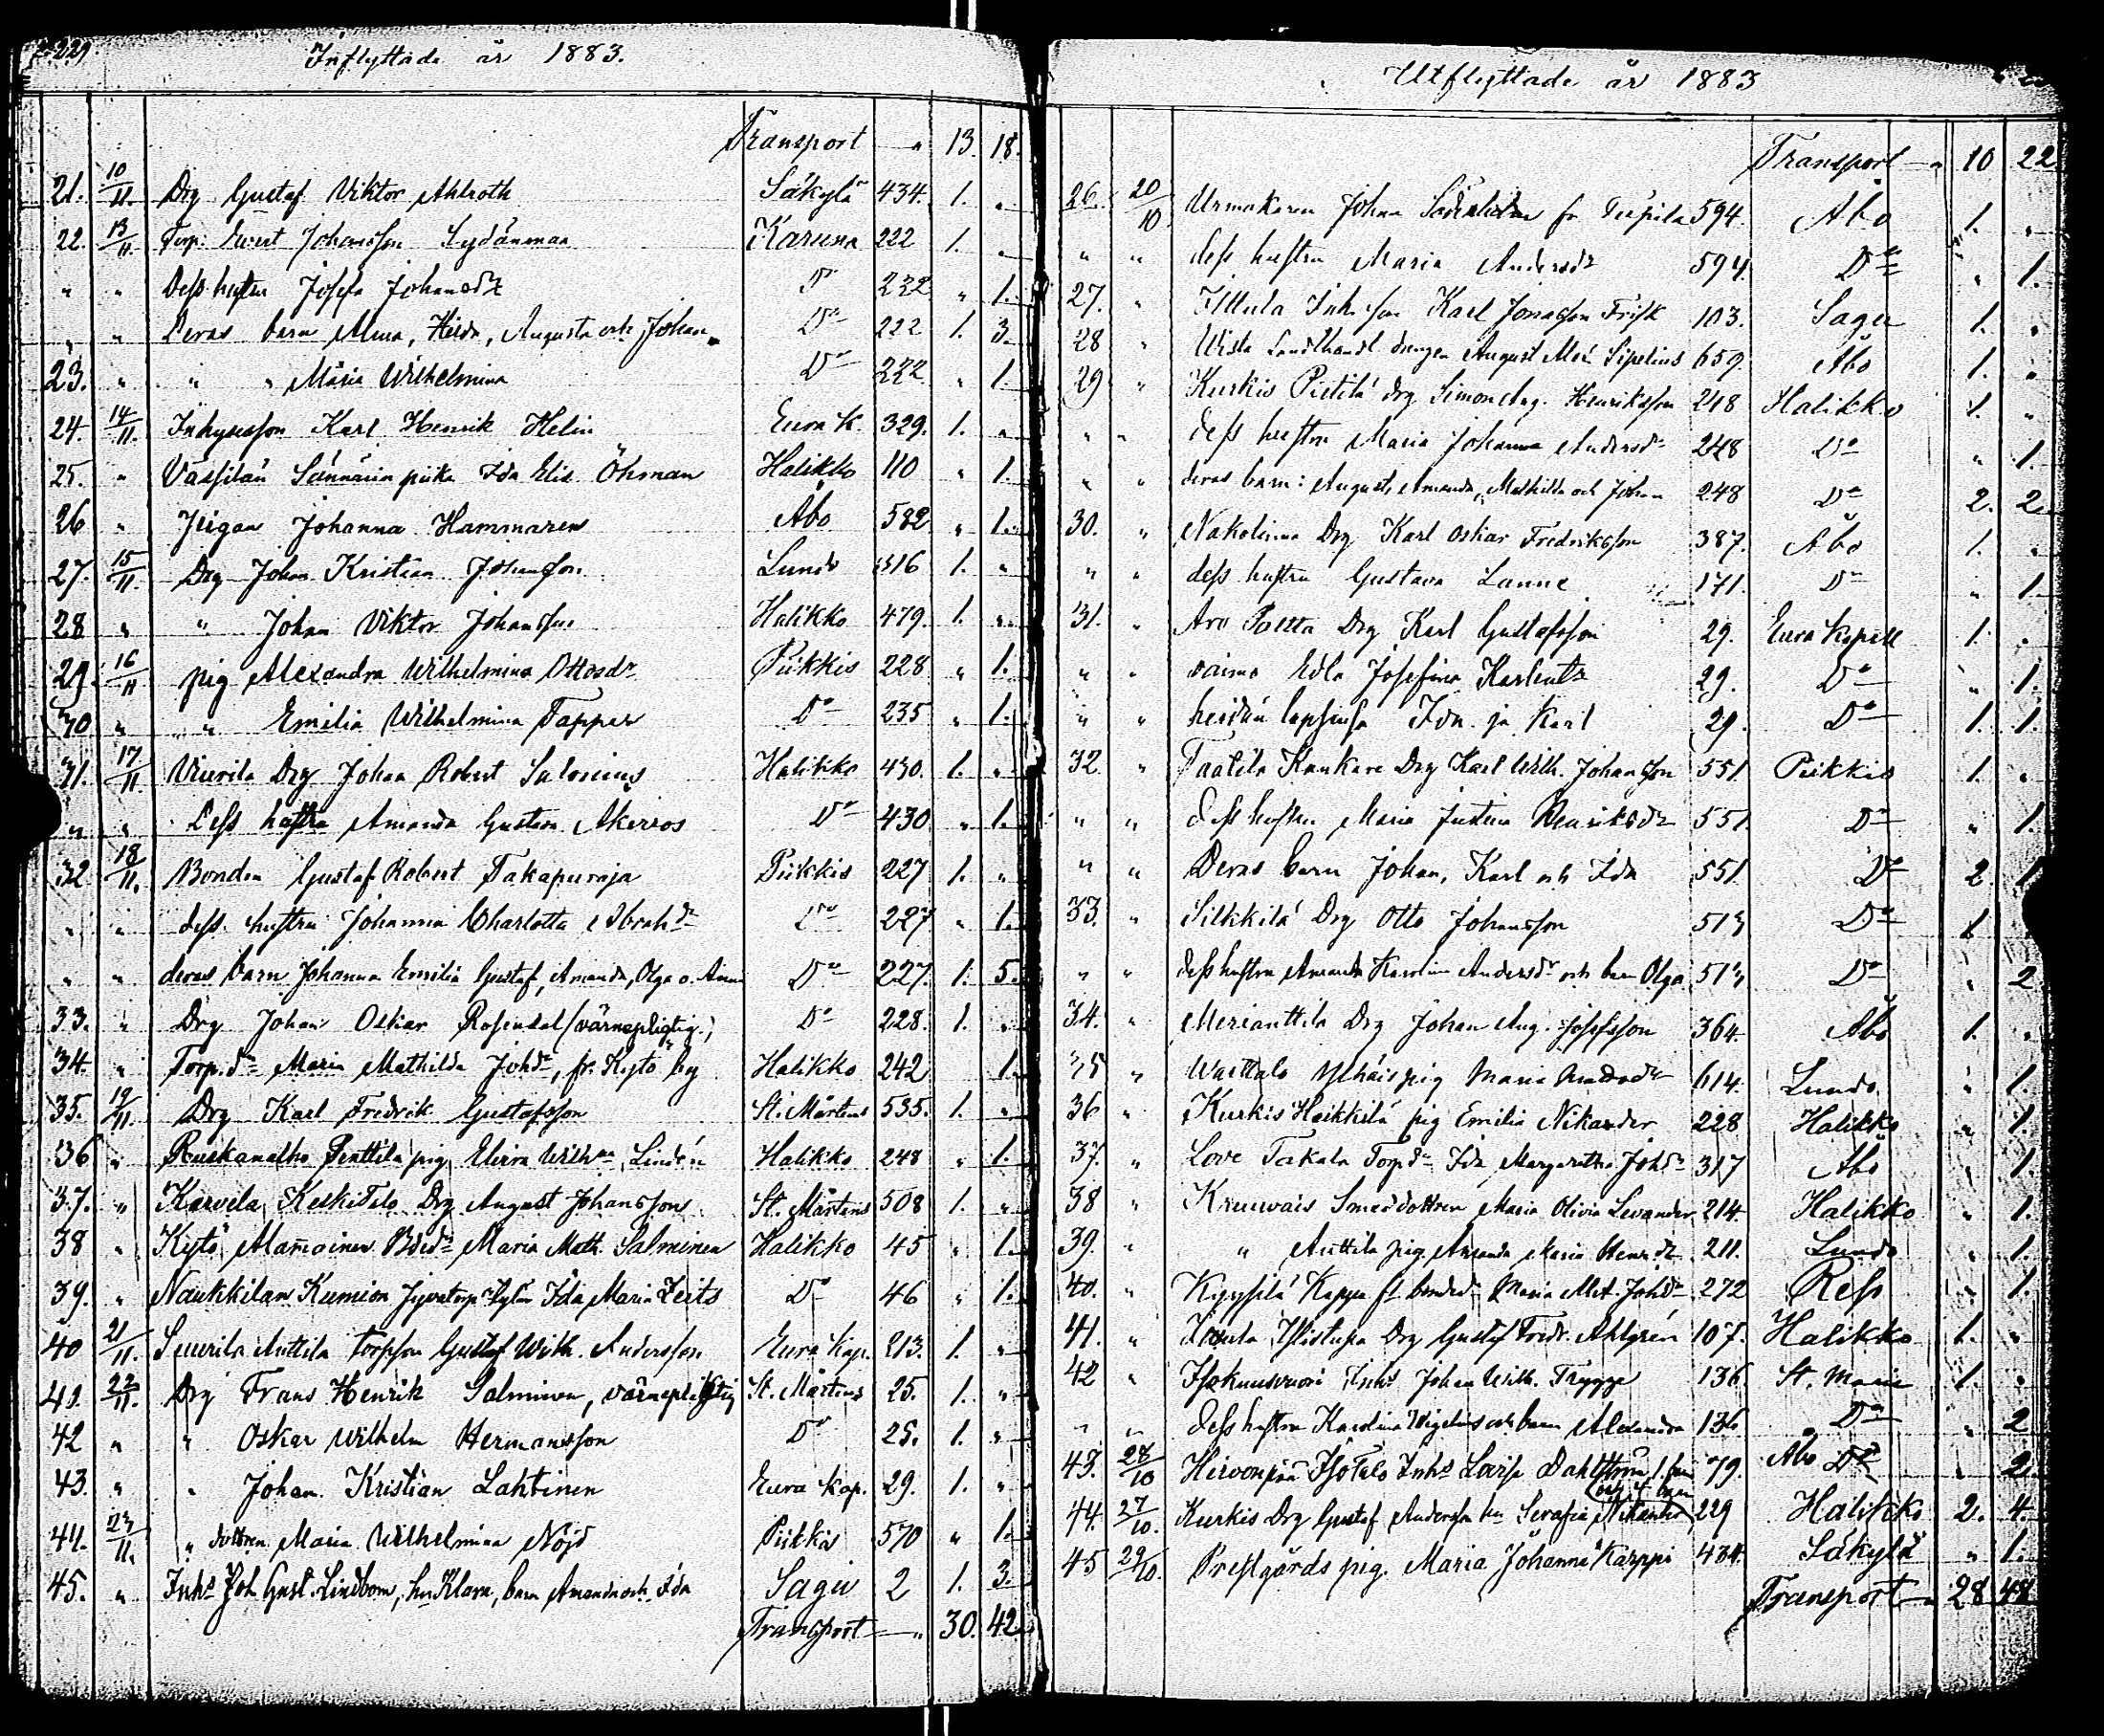 Inflyttade år 1883.
Transport " 13. 18.
21. 10/11. Drg Gustaf Viktor Ahlroth Säkylä 434. 1. "
22. 13/11. Torp. Evert Johansson Sydänmaa Karuna 222 1. "
" " Dess hustru Josefa Johansdr D 222 " 1.
" " Deras barn Alma, Hilda, Augusta och Johan D:o 222 1. 3.
23. " " " Maria Wilhelmina D:o 222 " 1.
24. 14/11. Inhyssson Karl Henrik Helin Eura K. 329. 1. "
25. " Vässilän Sännärin piika Ida Elis. Öhman Halikko 110 " 1.
26 " Pigan Johanna Hammaren Åbo 582 " 1.
27. 15/11. Drg Johan Kristian Johansson Lundo 516 1. "
28 " " Johan Viktor Johansson Halikko 479. 1. "
29. 16/11 pig Alexandra Wilhelmina Ottosdr Piikkis 228 " 1.
30 " " Emilia Wilhelmina Tapper D:o 235 " 1.
31. 17/11 Viurila Drg Johan Robert Salonius Halikko 430. 1. "
" " Dess hustru Amanda Gustava Akerros D:o 430 " 1.
32 18/11. Bonden Gustaf Robert Takapuroja Piikkis 227 1. "
" " dess hustru Johanna Charlotta Abrahdr D:o 227 " 1.
" " deras barn Johanna Emilia Gustaf, Amanda, Olga o. Anna D:o 227. 1. 5.
33. " Drg Johan Oskar Rosendal (värnepligtig.) D:o 228. 1. "
34. " Torp.dr Maria Mathilda Johdr, fr. Kytö by Halikko 242 1.
35. 19/11. Drg Karl Fredrik Gustafsson St. Mårtens 535. 1. "
36 " Ruskanalho Penttilä pig Elvira Wilhna Lindén Halikko 248 " 1.
37. " Karvela, Keskitalo Drg August Johansson St. Mårtens 508 1. "
38 " Kytö, Mamoinen Bdedr Maria Math. Salminen Halikko 45 " 1.
39. " Naukkilan Kumion Ida Maria Zeits D:o 46 " 1.
40 21/11. Suurila Anttila torpson Gustaf Wilh. Andersson Eura Kap. 213. 1. "
41. 22/11. Drg Frans Henrik Salminen, värnepligtig St. Mårtens 25. 1. "
42 " " Oskar Wilhelm Hermansson D:o 25. 1. "
43. " " Johan Kristian Lahtinen Eura Kap. 29. 1. "
44. 23/11. " dottren Maria Wilhelmina Nöjd Piikkis 570 " 1.
45. " Inhs Joh Gust. Lindbom, hu Klara, barn Amanda och Ida Sagu 2 1. 3.
Transport " 30. 42.
Utflyttade år 1883
Transport " 10 22
26. 20/10 Urmakaren Johan fr Tiipila 594. Åbo 1. "
" " dess hustru Maria Andersdr 594. D:o " 1.
27. " Inh. son Karl Jonasson Frisk 103. Sagu 1. "
28 " Wista Landthandl. drengen August Sipelius 659. Åbo 1. "
29 " Kurkis Pietilä drg Simon Aug. Henriksson 248 Halikko 1. "
" " dess hustru Maria Johanna Andersdr 248 D:o " 1.
" " deras barn: August, Amanda, Mathilda och Johan 248 D:o 2. 2.
30. " Nakolinna Drg Karl Oskar Fredriksson 387. Åbo 1. "
" " dess hustru Gustava Lunne 171. D:o " 1
31. " Aro Drg Karl Gustafsson 29. Eura Kapell 1. "
" " vaimo Edla Josefina Karlentr 29. D:o " 1.
" " heidän lapsensa Ida ja Karl 29. D:o 1. 1.
32. " Taatila Kankare Drg Karl Wilh. Johansson 551. Piikkis 1. "
" " Dess hustru Maria Justina Henriksdr 551. D:o " 1.
" " Deras barn Johan, Karl och Ida 551. D:o 2. 1
33. " Silkkilä Drg Otto Johansson 513 D:o 1 "
" " dess hustru Amanda Karolina Andersdr och barn Olga 513 D:o " 2
34. " Merianttila Drg Johan Aug. Josefsson 364. Åbo 1. "
35 " Wasttalo Ylhäis pig Maria 614. Lundo " 1.
36 " Kurkis Heikkilä pig Emilia Nikander 228 Halikko " 1
37. " Love Takala Torpdr Ida Margaretha Johdr 317 Åbo " 1.
38 " Kruuvais Smeddottren Maria Olivia Levander 214. Halikko " 1.
39. " " Anttila pig. Amanda Maria Henrdr 211. Lundo " 1.
40. " Kyyssilä Kappa Maria Mat. Johdr 272 Reso " 1.
41. " Ylistupa Drg Gustaf Fredr. Ahlgrén 107. Halikko 1. "
42 " Isokuusvuori Inhs Johan Wilh. Trygge 136. St. Marie 1. "
" " dess hustru Karolina och barn Alexandra 136 D:o " 2
43. 27/10 Hirvonpää Isotalo Inhs Lovisa Dahlström 1. barn 79. Åbo D:o " 2.
44. 27/10. Kurkis Drg Gustaf Andersson hu Serafia Nikander och 4 barn 229 Halikko 2. 4.
45 29/10. Prestgårds pig. Maria Johanna Karppi 434. Säkylä " 1.
Transport " 28 48